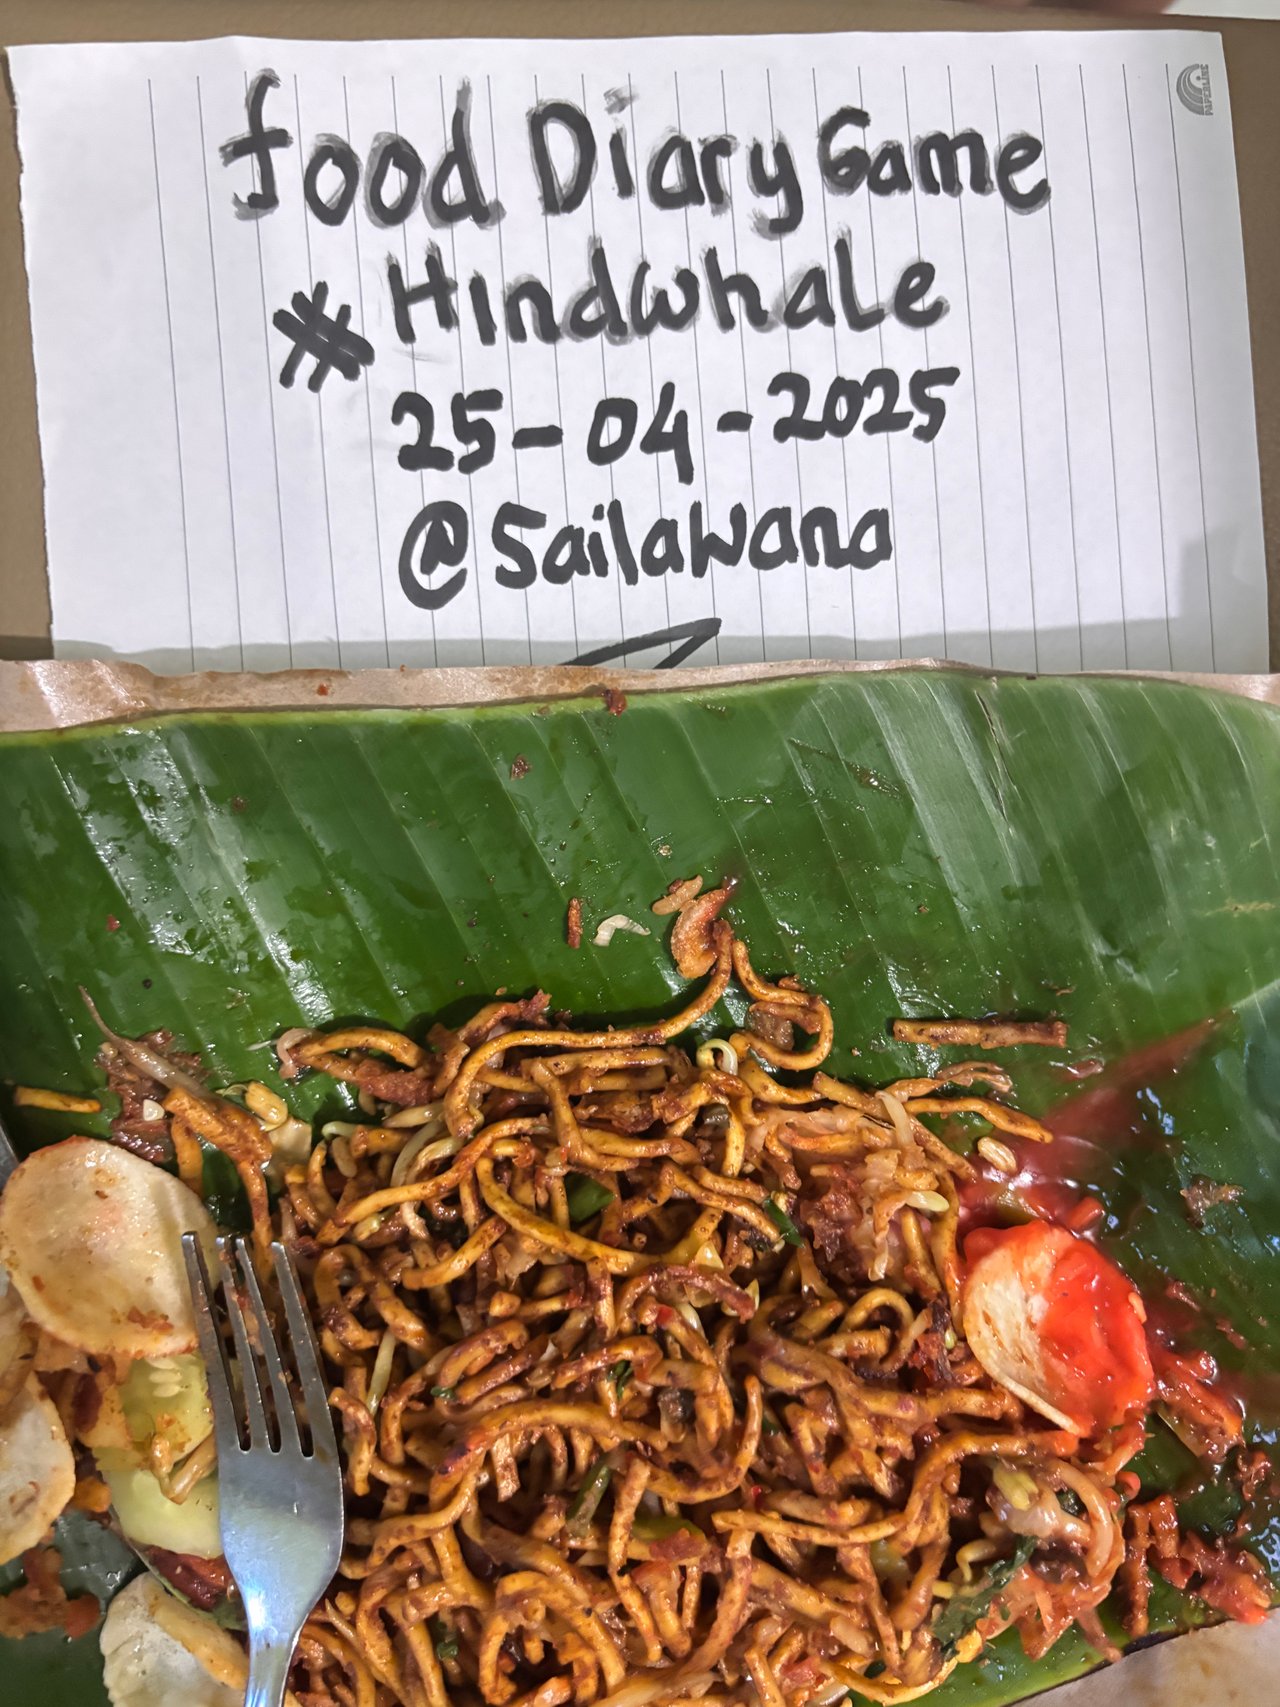 food Diary Game
# Hindwhale
25-04-2025
@Sailawana
PAPERLINE